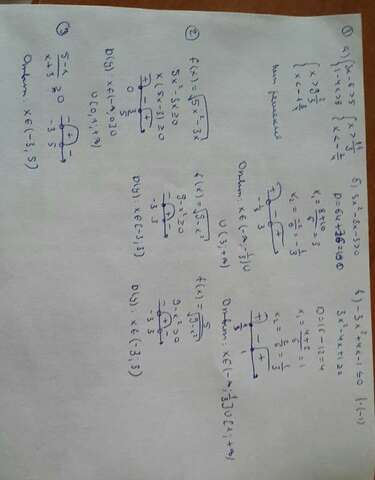 ① а) {3x-6>5
{1-4x>8
{x>
{x<-
{x>3
{x<-1
нет решения
б) 3x²-8x-3>0
D=64+36=100
x₁=8+10/6=3
x₂=-2/6=-1/3
+ - +
-1/3 3
Ответ: x∈(-∞;-1/3)∪(3;+∞)
в) -3x²+4x-1≤0 |·(-1)
3x²-4x+1≥
D=16-12=4
x₁=4+2/6=1
x₂=2/6=1/3
+ - +
1/3 1
Ответ: x∈(-∞;1/3]∪[1;+∞)
② f(x)=√5x²-3x
5x²-3x≥0
x(5x-3)≥0
+ - +
0 3/5
D(y): x∈(-∞;0]∪
f(x)=√9-x²
9-x²≥0
- + -
-3 3
D(y): x∈(-3;3)
f(x)=5/√9-x²
9-x²>0
- + -
-3 3
D(y): x∈(-3;3)
③ 5-x/x+3≥0
- + -
-3 5
Ответ: x∈(-3;5)